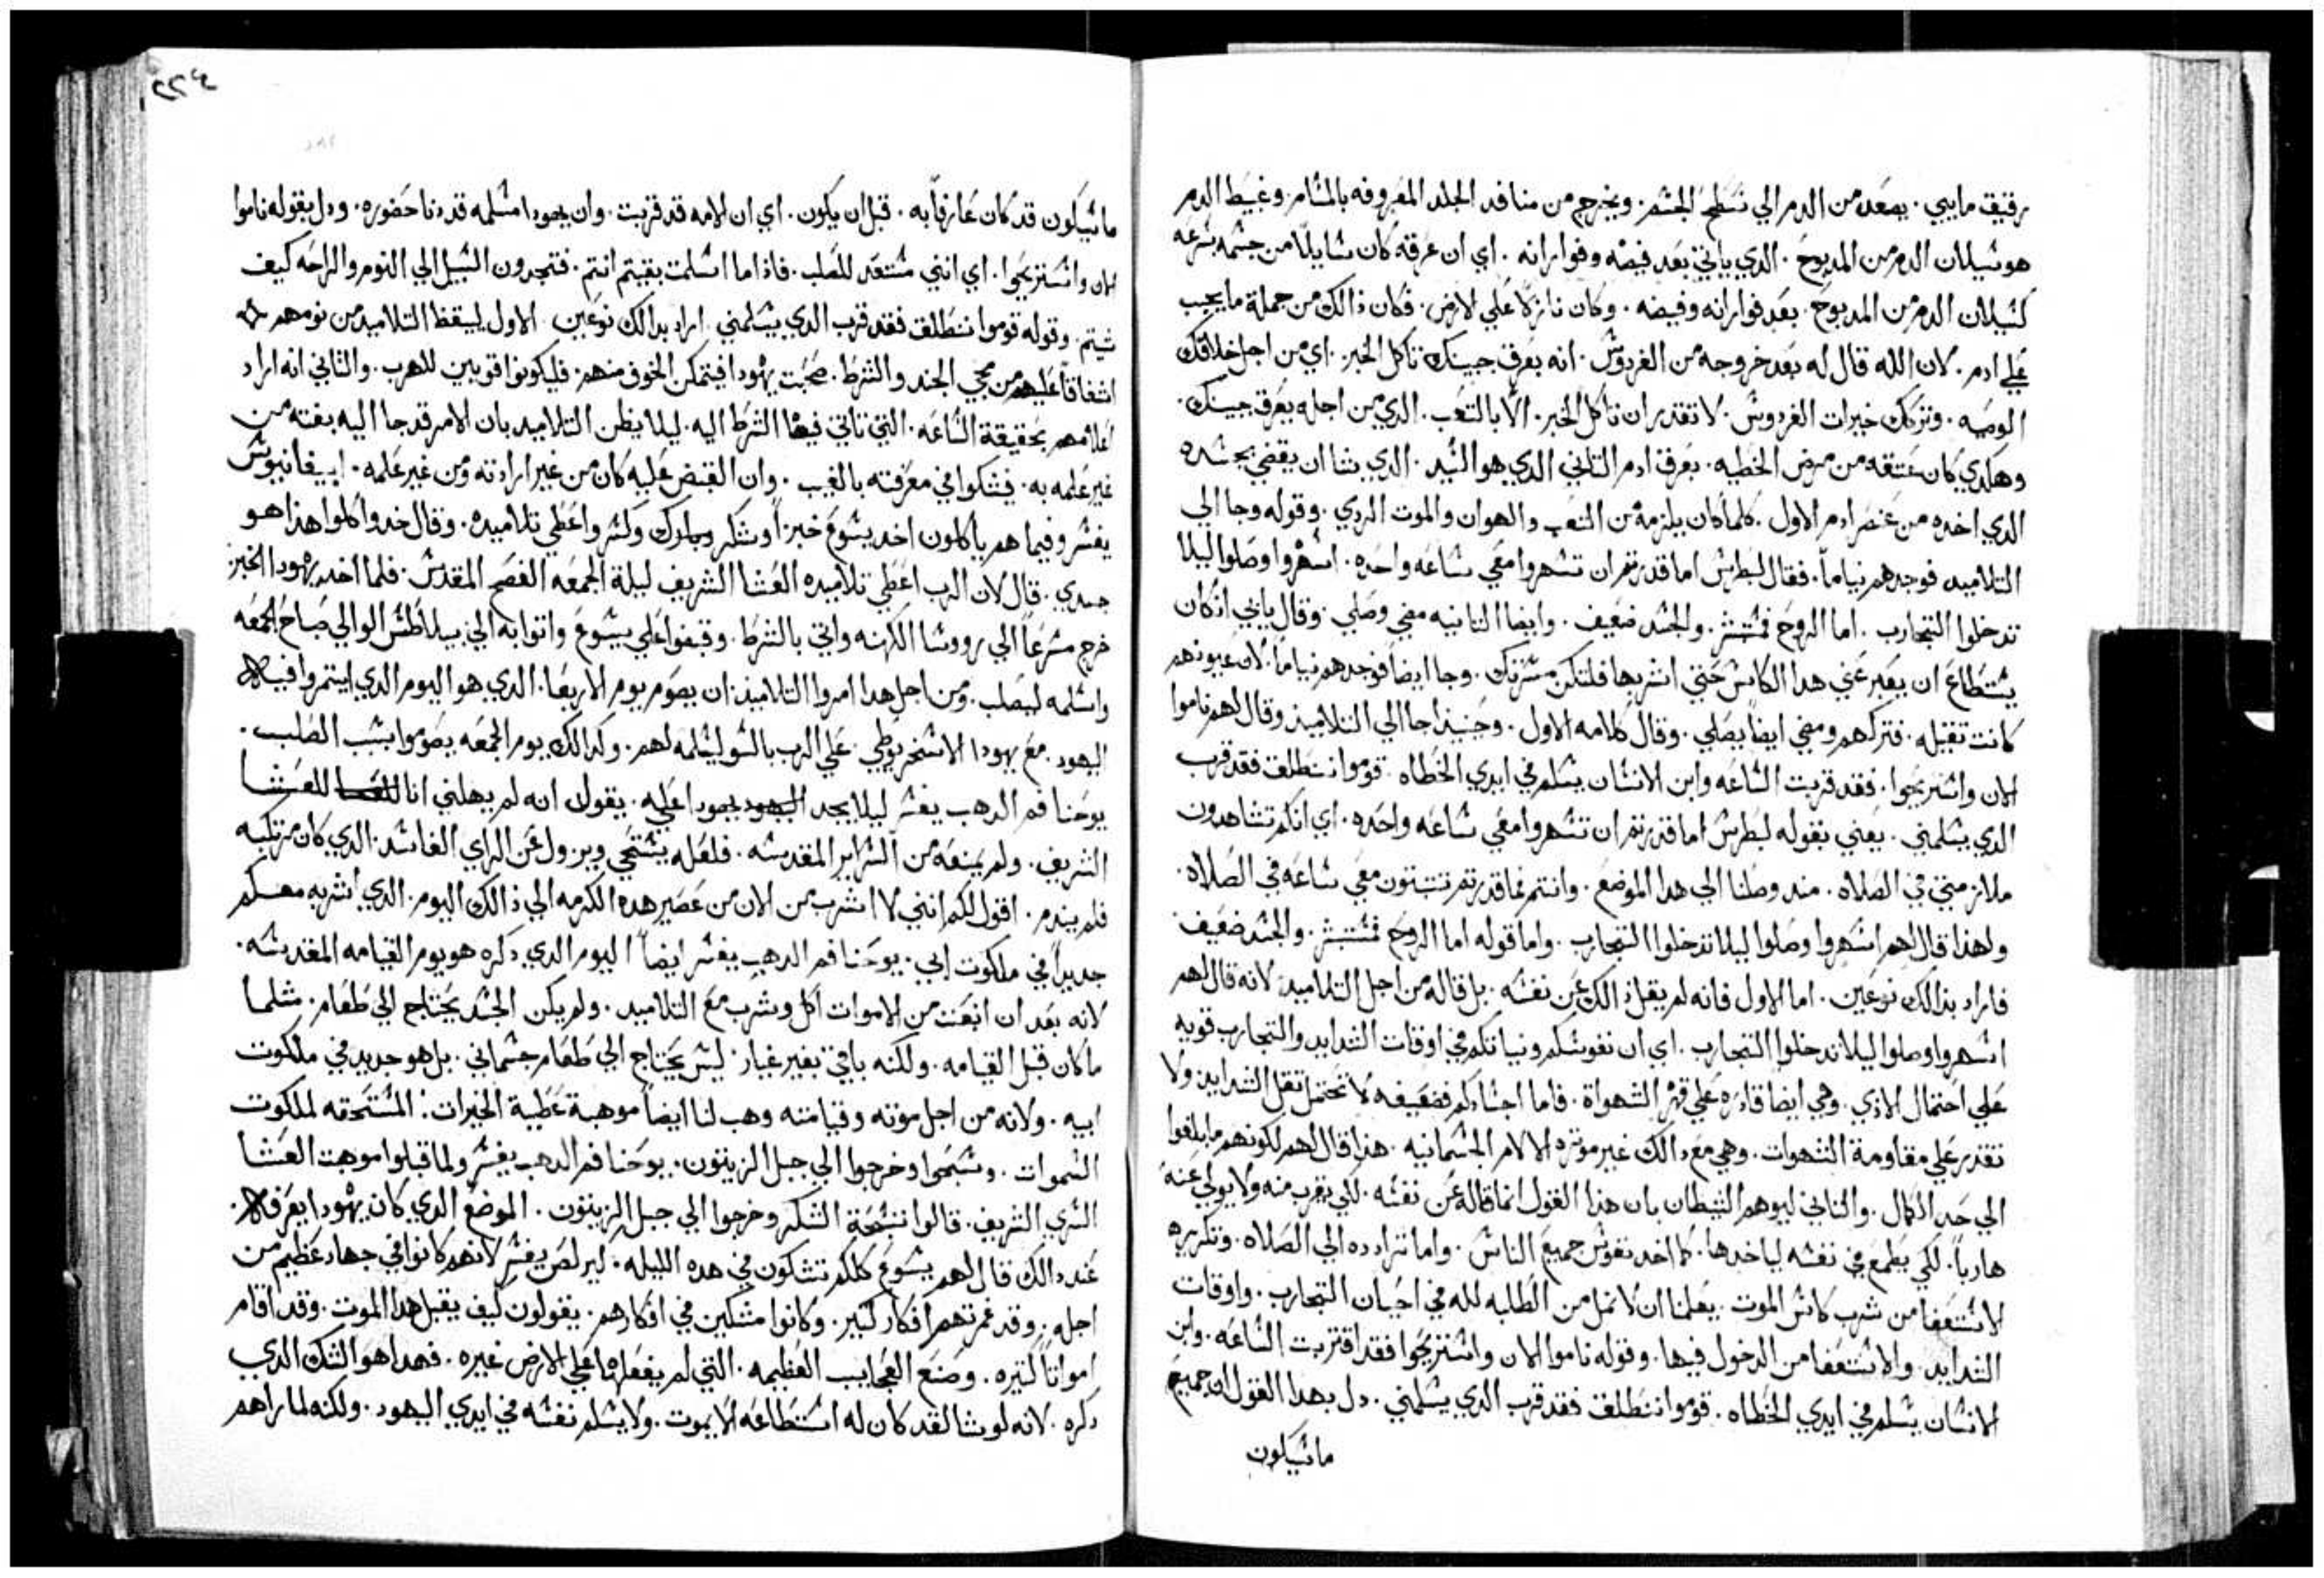 رقيق مايي. يصعد من الدم الي سطح الجسم. ويخرج من منافد الجلد المعروفه بالمسام. وغبيط الدم
هو سيلان الدم من المدبوح. الدي ياتي بعد فيضه وفورانه. اي ان عرقه كان سايلاً من جسمه بسرعه
كسيلان الدم من المدبوح. بعد فورانه وفيضه. وكان نازلاً علي الارض. فكان ذالك من جملة ما يجب
علي ادم. لان الله قال له بعد خروجه من الفردوس. انه بعرق جبينك تاكل الخبز. اي من اجل خلافك
الوصيه. وتركك خيرات الفردوس. لا تقدر ان تاكل الخبز. الّا بالتعب. الدي من اجله يعرق جبينك.
وهكدي كان عتقه من مرض الخطيه. بعرق ادم التاني الدي هو السيد. الدي شا ان يقضي بجسده
الدي اخده من عنصر ادم الاول. كلما كان يلزمه من التعب والهوان والموت الردي. وقوله وجا الي
التلاميد فوجدهم نياماً. فقال لبطرس اما قدرتم ان تسهروا معي ساعه واحده. اسهروا وصلوا ليلا
تدخلوا التجارب. اما الروح فمستبشر. والجسد ضعيف. وايضا التانيه مضي وصلي. وقال يا ابي ان كان
يستطاع ان يعبر عني هدا الكاس حتي اشربها فلتكن مسرتك. وجا ايضاً فوجدهم نياماً. لان عيونهم
كانت تقيله. فتركهم ومضي ايضاً يصلي. وقال كلامه الاول. وحينيد جا الي التلاميد وقال لهم ناموا
الان واستريحوا. فقد قربت الساعه وابن الانسان يسلم في ايدي الخطاه. قوموا ننطلق فقد قرب
الدي يسلمني. يعني بقوله لبطرس اما قدرتم ان تسهروا معي ساعه واحده. اي انكم تشاهدون
ملازمتي في الصلاه. مند وصلنا الي هدا الموضع. وانتم فما قدرتم تتبتون معي ساعه في الصلاه.
ولهذا قال لهم اسهروا وصلوا ليلا تدخلوا التجارب. واما قوله اما الروح فمستبشر. والجسد ضعيف
فاراد بذالك نوعين. اما الاول فانه لم يقل ذالك عن نفسه. بل قاله من اجل التلاميد. لانه قال لهم
اسهروا وصلوا ليلا تدخلوا التجارب. اي ان نفوسكم ونياتكم في اوقات الشدايد والتجارب قويه
علي احتمال الاذي. وهي ايضا قادره علي قهر الشهواة. فاما اجسادكم فضعيفه لا تحتمل تقل الشدايد ولا
تقدر علي مقاومة الشهوات. وهي مع دالك غير موتره الالام الجسمانيه. هذا قال لهم لكونهم ما بلغوا
الي حد الكمال. والتاني ليوهم الشيطان بان هذا القول انما قاله عن نفسه. لكي يقرب منه ولا يولي عنه
هارباً. لكي يطمع في نفسه لياخدها. كما اخد نفوس جميع الناس. واما ترادده الي الصلاه. وتكريره
الاستعفا من شرب كاس الموت. يعلمنا ان لا نمل من الطلبه لله في احيان التجارب. واوقات
الشدايد. والاستعفا من الدخول فيها. وقوله ناموا الان واستريحوا فقد اقتربت الساعه. وابن
الانسان يسلم في ايدي الخطاه. قوموا ننطلق فقد قرب الدي يسلمني. دل بهدا القول ان جميع
ماسيكون
ماسيكون قد كان عارفاً به. قبل ان يكون. اي ان الامه قد قربت. وان يهودا مسلمه قد دنا حضوره. ودل بقوله ناموا
الان واستريحوا. اي انني مستعد للصلب. فاذا ما اسلمت بقيتم انتم. فتجدون السبيل الي النوم والراحه كيف
شيتم. وقوله قوموا ننطلق فقد قرب الدي يسلمني. اراد بدالك نوعين. الاول ليقظ التلاميد من نومهم
اشفاقاً عليهم من مجي الجند والشرط. صحبت يهودا فيتمكن الخوف منهم. فليكونوا قويين للهرب. والتاني انه اراد
اعلامهم بحقيقة الساعه. التي تاتي فيها الشرط اليه. ليلا يظن التلاميد بان الامر قد جا اليه بغته من
غير علمه به. فيشكوا في معرفته بالغيب. وان القبض عليه كان من غير ارادته ومن غير علمه. ابيفانيوس
يفسر وفيما هم ياكلون اخد يسوع خبزاً وشكر وبارك وكسر واعطي تلاميده. وقال خدوا كلوا هذا هو
جسدي. قال لان الرب اعطي تلاميده العشا الشريف ليلة الجمعه الفصح المقدس. فلما اخد يهودا الخبز
خرج مسرعاً الي رووسا الكهنه واتي بالشرط. وقبضوا علي يسوع واتوا به الي بيلاطس الوالي صباح الجمعه
واسلمه ليصلب. ومن اجل هدا امروا التلاميذ ان يصوم يوم الاربعا. الدي هو اليوم الدي ايتمروا فيه
اليهود. مع يهودا الاسخريوطي. علي الرب بالسو ليسلمه لهم. وكدالك يوم الجمعه يصوموا بسبب الصلب.
يوحنا فم الدهب يفسر ليلا يجد اليهود يهودا عله. يقول انه لم يهلني انا للعشا للعشا
الشريف. ولم يمنعه من السراير المقدسه. فلعله يستحي ويزول عن الراي الفاسد. الدي كان مرتكبه
فلم يندم. اقول لكم انني لا اشرب من الان من عصير هده الكرمه الي ذالك اليوم. الدي اشربه معكم
جديداً في ملكوت ابي. يوحنا فم الدهب يفسر ايضاً اليوم الدي دكره هو يوم القيامه المقدسه.
لانه بعد ان انبعت من الاموات اكل وشرب مع التلاميد. ولم يكن الجسد يحتاج الي طعام. متلما
ما كان قبل القيامه. ولكنه باقي بغير غيار. ليس يحتاج الي طعام جسماني. بل هو جديد في ملكوت
ابيه. ولانه من اجل موته وقيامته وهب لنا ايضاً موهبة عطية الخيرات. المستحقه لملكوت
السموات. وسبحوا وخرجوا الي جبل الزيتون. يوحنا فم الدهب يفسر ولما قبلوا موهبت العشا
السري الشريف. قالوا تسبحة الشكر وخرجوا الي جبل الزيتون. الموضع الدي كان يهودا يعرفه.
عند دالك قال لهم يسوع كلكم تشكون في هده الليله. ايرلص يفسر لانهم كانوا في جهاد عظيم من
اجله. وقد غمرتهم افكار كتير. وكانوا مشككين في افكارهم. يقولون كيف يقبل هدا الموت. وقد اقام
امواتاً كتيره. وصنع العجايب العظيمه. التي لم يفعلها علي الارض غيره. فهدا هو الشك الدي
دكره. لانه لو شا لقد كان له استطاعه الا يموت. ولا يسلم نفسه في ايدي اليهود. ولكنه لما راهم